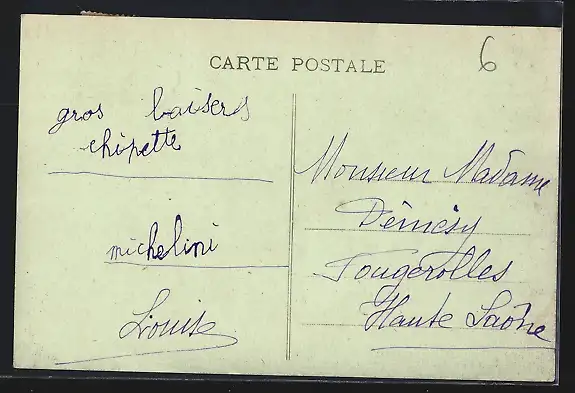 CARTE POSTALE
6
gros baisers
chipette
michelini
Louise
Monsieur Madame
Démésy
Fougerolles
Haute Saône